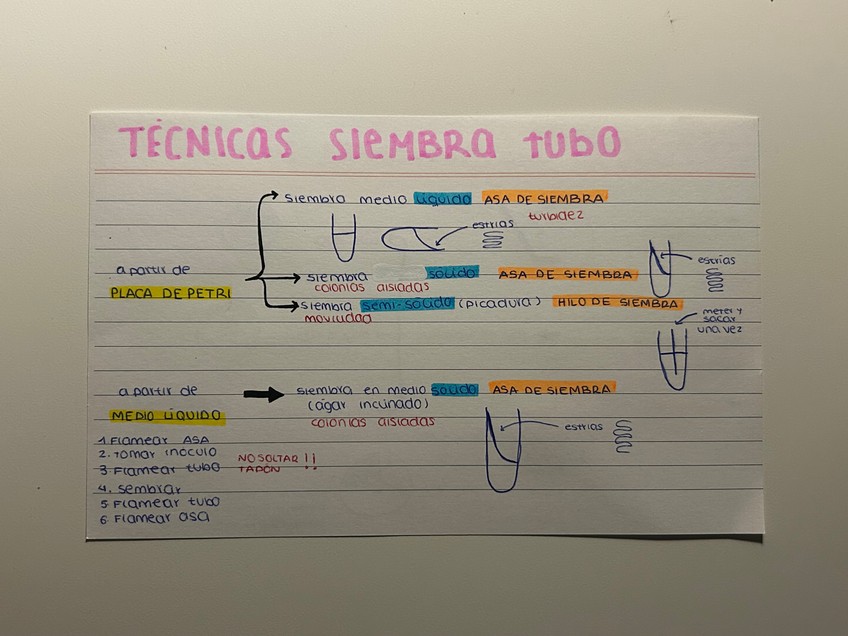 TÉCNICAS SIEMBRA TUBO
siembra medio líquido ASA DE SIEMBRA
turbidez
estrías
estrías
a partir de
PLACA DE PETRI
siembra sólido ASA DE SIEMBRA
colonias aisladas
siembra semi-sólido (picadura) HILO DE SIEMBRA
movilidad
meter y
sacar
una vez
a partir de
MEDIO LÍQUIDO
siembra en medio sólido ASA DE SIEMBRA
(agar inclinado)
colonias aisladas
estrías
1. Flamear ASA
2. tomar inóculo
3. Flamear tubo
NO SOLTAR !!
TAPÓN
4. sembrar
5. Flamear tubo
6. Flamear asa